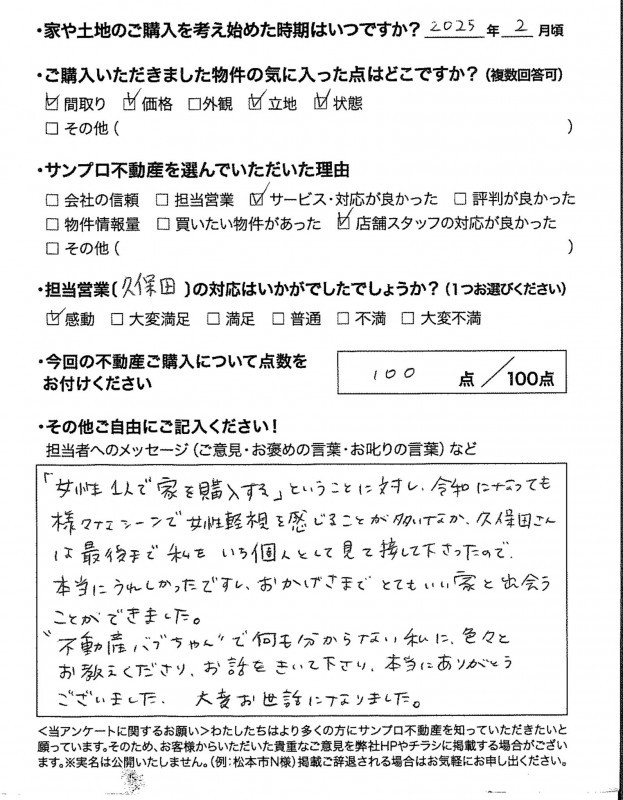 ・家や土地のご購入を考え始めた時期はいつですか? 2025 年 2 月頃
・ご購入いただきました物件の気に入った点はどこですか?(複数回答可)
☑間取り ☑価格 □外観 ☑立地 ☑状態
□その他( )
・サンプロ不動産を選んでいただいた理由
□会社の信頼 □担当営業 ☑サービス・対応が良かった □評判が良かった
□物件情報量 □買いたい物件があった ☑店舗スタッフの対応が良かった
□その他( )
・担当営業(久保田)の対応はいかがでしたでしょうか?(1つお選びください)
☑感動 □大変満足 □満足 □普通 □不満 □大変不満
・今回の不動産ご購入について点数を
お付けください
100 点/100点
・その他ご自由にご記入ください!
担当者へのメッセージ(ご意見・お褒めの言葉・お叱りの言葉)など
「女性1人で家を購入する」ということに対し、令和になっても
様々なシーンで女性軽視を感じることが多いなか、久保田さん
は最後まで私をいち個人として見て接して下さったので、
本当にうれしかったですし、おかげさまでとてもいい家と出会う
ことができました。
"不動産バブちゃん"で何も分からない私に、色々と
お教えくださり、お話をきいて下さり、本当にありがとう
ございました。 大変お世話になりました。
<当アンケートに関するお願い>わたしたちはより多くの方にサンプロ不動産を知っていただきたいと
願っています。そのため、お客様からいただいた貴重なご意見を弊社HPやチラシに掲載する場合がござい
ます。※実名は公開いたしません。(例:松本市N様)掲載ご辞退される場合はお気軽にお申し出ください。